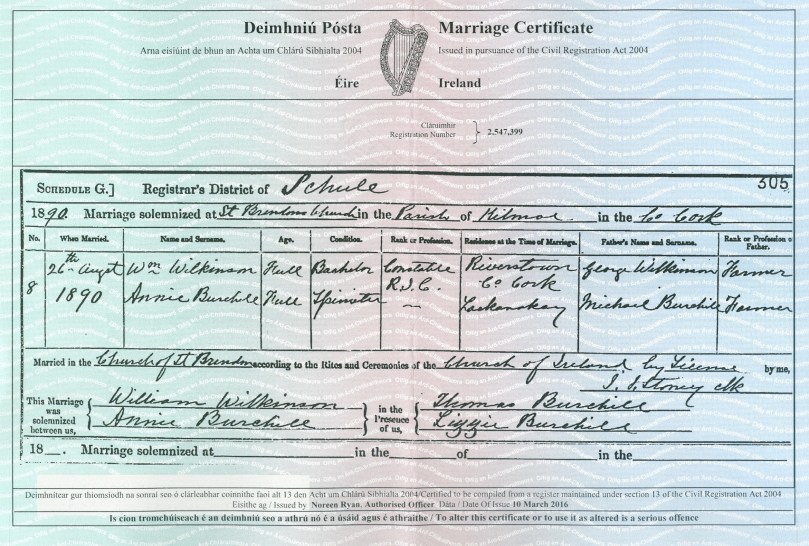 Deimhniú Pósta Marriage Certificate
Arna eisiúint de bhun an Achta um Chlárú Sibhialta 2004 Issued in pursuance of the Civil Registration Act 2004
Éire Ireland
Cláruimhir
Registration Number } 2,547,399
305
SCHEDULE G.] Registrar's District of Schule
1890. Marriage solemnized at St Brendans Church in the Parish of Kilmoe in the Co Cork
No. When Married. Name and Surname. Age. Condition. Rank or Profession. Residence at the Time of Marriage. Father's Name and Surname. Rank or Profession o Father.
8 26th Augst 1890 Wm Wilkinson Full Bachelor Constable R.I.C. Riverstown Co Cork George Wilkinson Farmer
Annie Burchill Full Spinster — Michael Burchill Farmer
Married in the Church of St Brendan according to the Rites and Ceremonies of the Church of Ireland by License by me,
Stoney Clk
This Marriage was solemnized between us, { William Wilkinson Annie Burchill } in the Presence of us, { Thomas Burchill Lizzie Burchill
18__. Marriage solemnized at in the of in the
Deimhnítear gur thiomsíodh na sonraí seo ó chlárleabhar coinnithe faoi alt 13 den Acht um Chlárú Sibhialta 2004/Certified to be compiled from a register maintained under section 13 of the Civil Registration Act 2004
Eisithe ag / Issued by Noreen Ryan, Authorised Officer Dáta / Date Of Issue 10 March 2016
Is cion tromchúiseach é an deimhniú seo a athrú nó é a úsáid agus é athraithe / To alter this certificate or to use it as altered is a serious offence